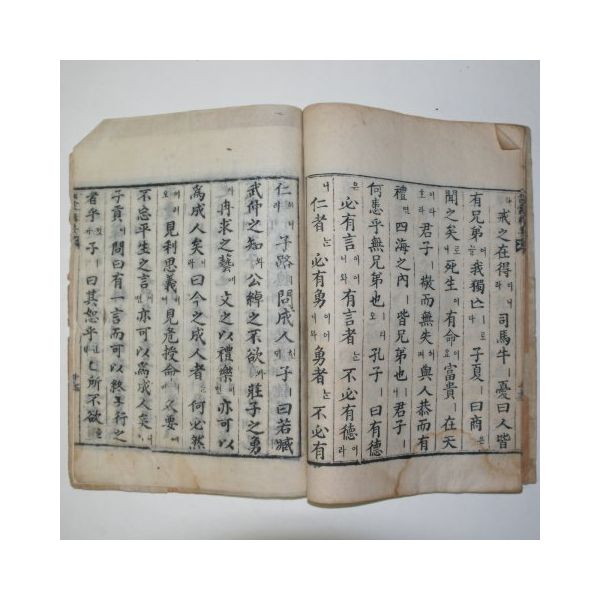 戒之在得이니라司馬牛ㅣ憂曰人皆
有兄弟어늘我獨亡로다子夏ㅣ曰商은
聞之矣로니死生이有命이오富貴ㅣ在天
이라君子ㅣ敬而無失며與人恭而有
禮면四海之內ㅣ皆兄弟也ㅣ니君子ㅣ
何患乎無兄弟也ㅣ리오孔子ㅣ曰有德
은必有言이어니와有言者는不必有德이라
니仁者는必有勇이어니와勇者는不必有
仁이니라子路ㅣ問成人子ㅣ曰若臧
武仲之知와公綽之不欲과莊子之勇
과冉求之藝에文之以禮樂이면亦可以
爲成人矣니라曰今之成人者는何必然
이리오見利思義며見危授命며久要
不忘平生之言이면亦可以爲成人矣니라
子貢이問曰有一言而可以終身行之
者乎잇가子ㅣ曰其恕乎己所不欲